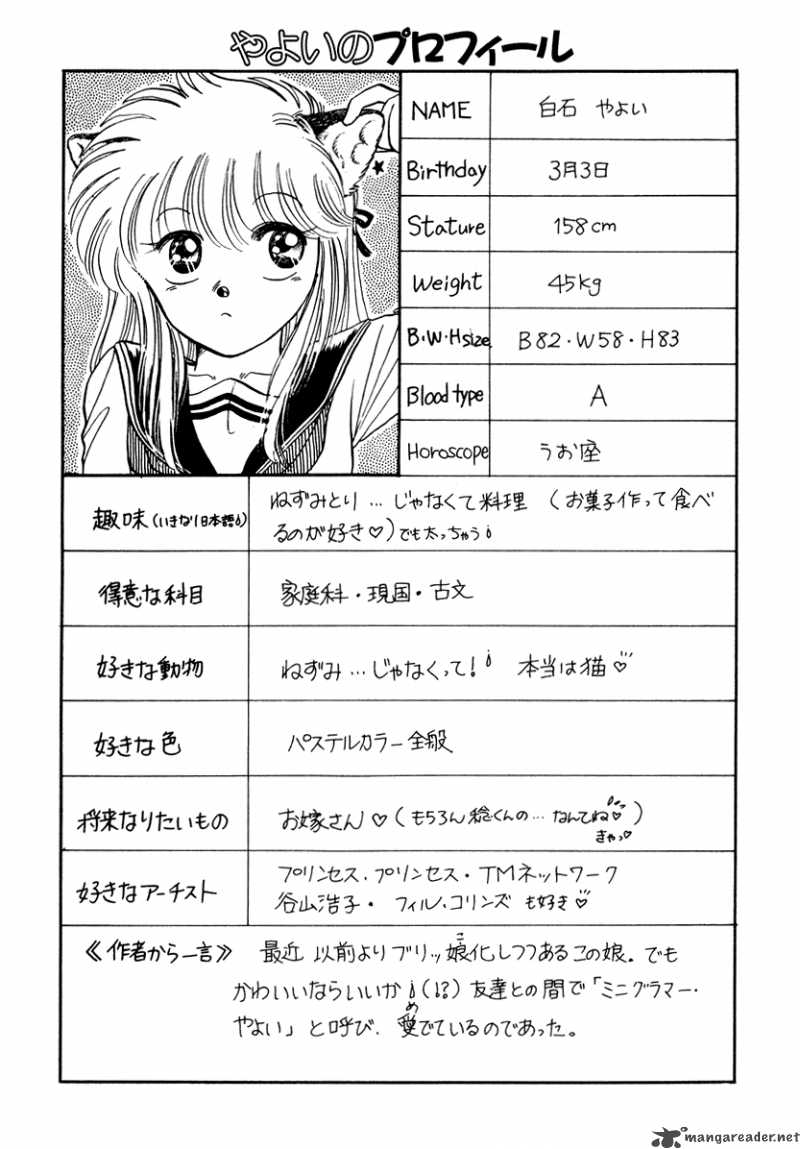 やよいのプロフィール
NAME 白石 やよい
Birthday 3月3日
Stature 158cm
Weight 45kg
B・W・Hsize B82・W58・H83
Blood type A
Horoscope うお座
趣味(いきなり日本語) ねずみとり…じゃなくて料理 (お菓子作って食べ
るのが好き♡)でも太っちゃう
得意な科目 家庭科・現国・古文
好きな動物 ねずみ…じゃなくって! 本当は猫♡
好きな色 パステルカラー全般
将来なりたいもの お嫁さん♡(もちろん稔くんの…なんてね♡)
きゃっ♡
好きなアーチスト プリンセス.プリンセス・TMネットワーク
谷山浩子・フィル.コリンズ も好き♡
《作者から一言》 最近 以前よりブリッ娘化しつつあるこの娘。でも
こ
かわいいならいいか(!?)友達との間で「ミニグラマー・
め
やよい」と呼び、愛でているのであった。
mangareader.net